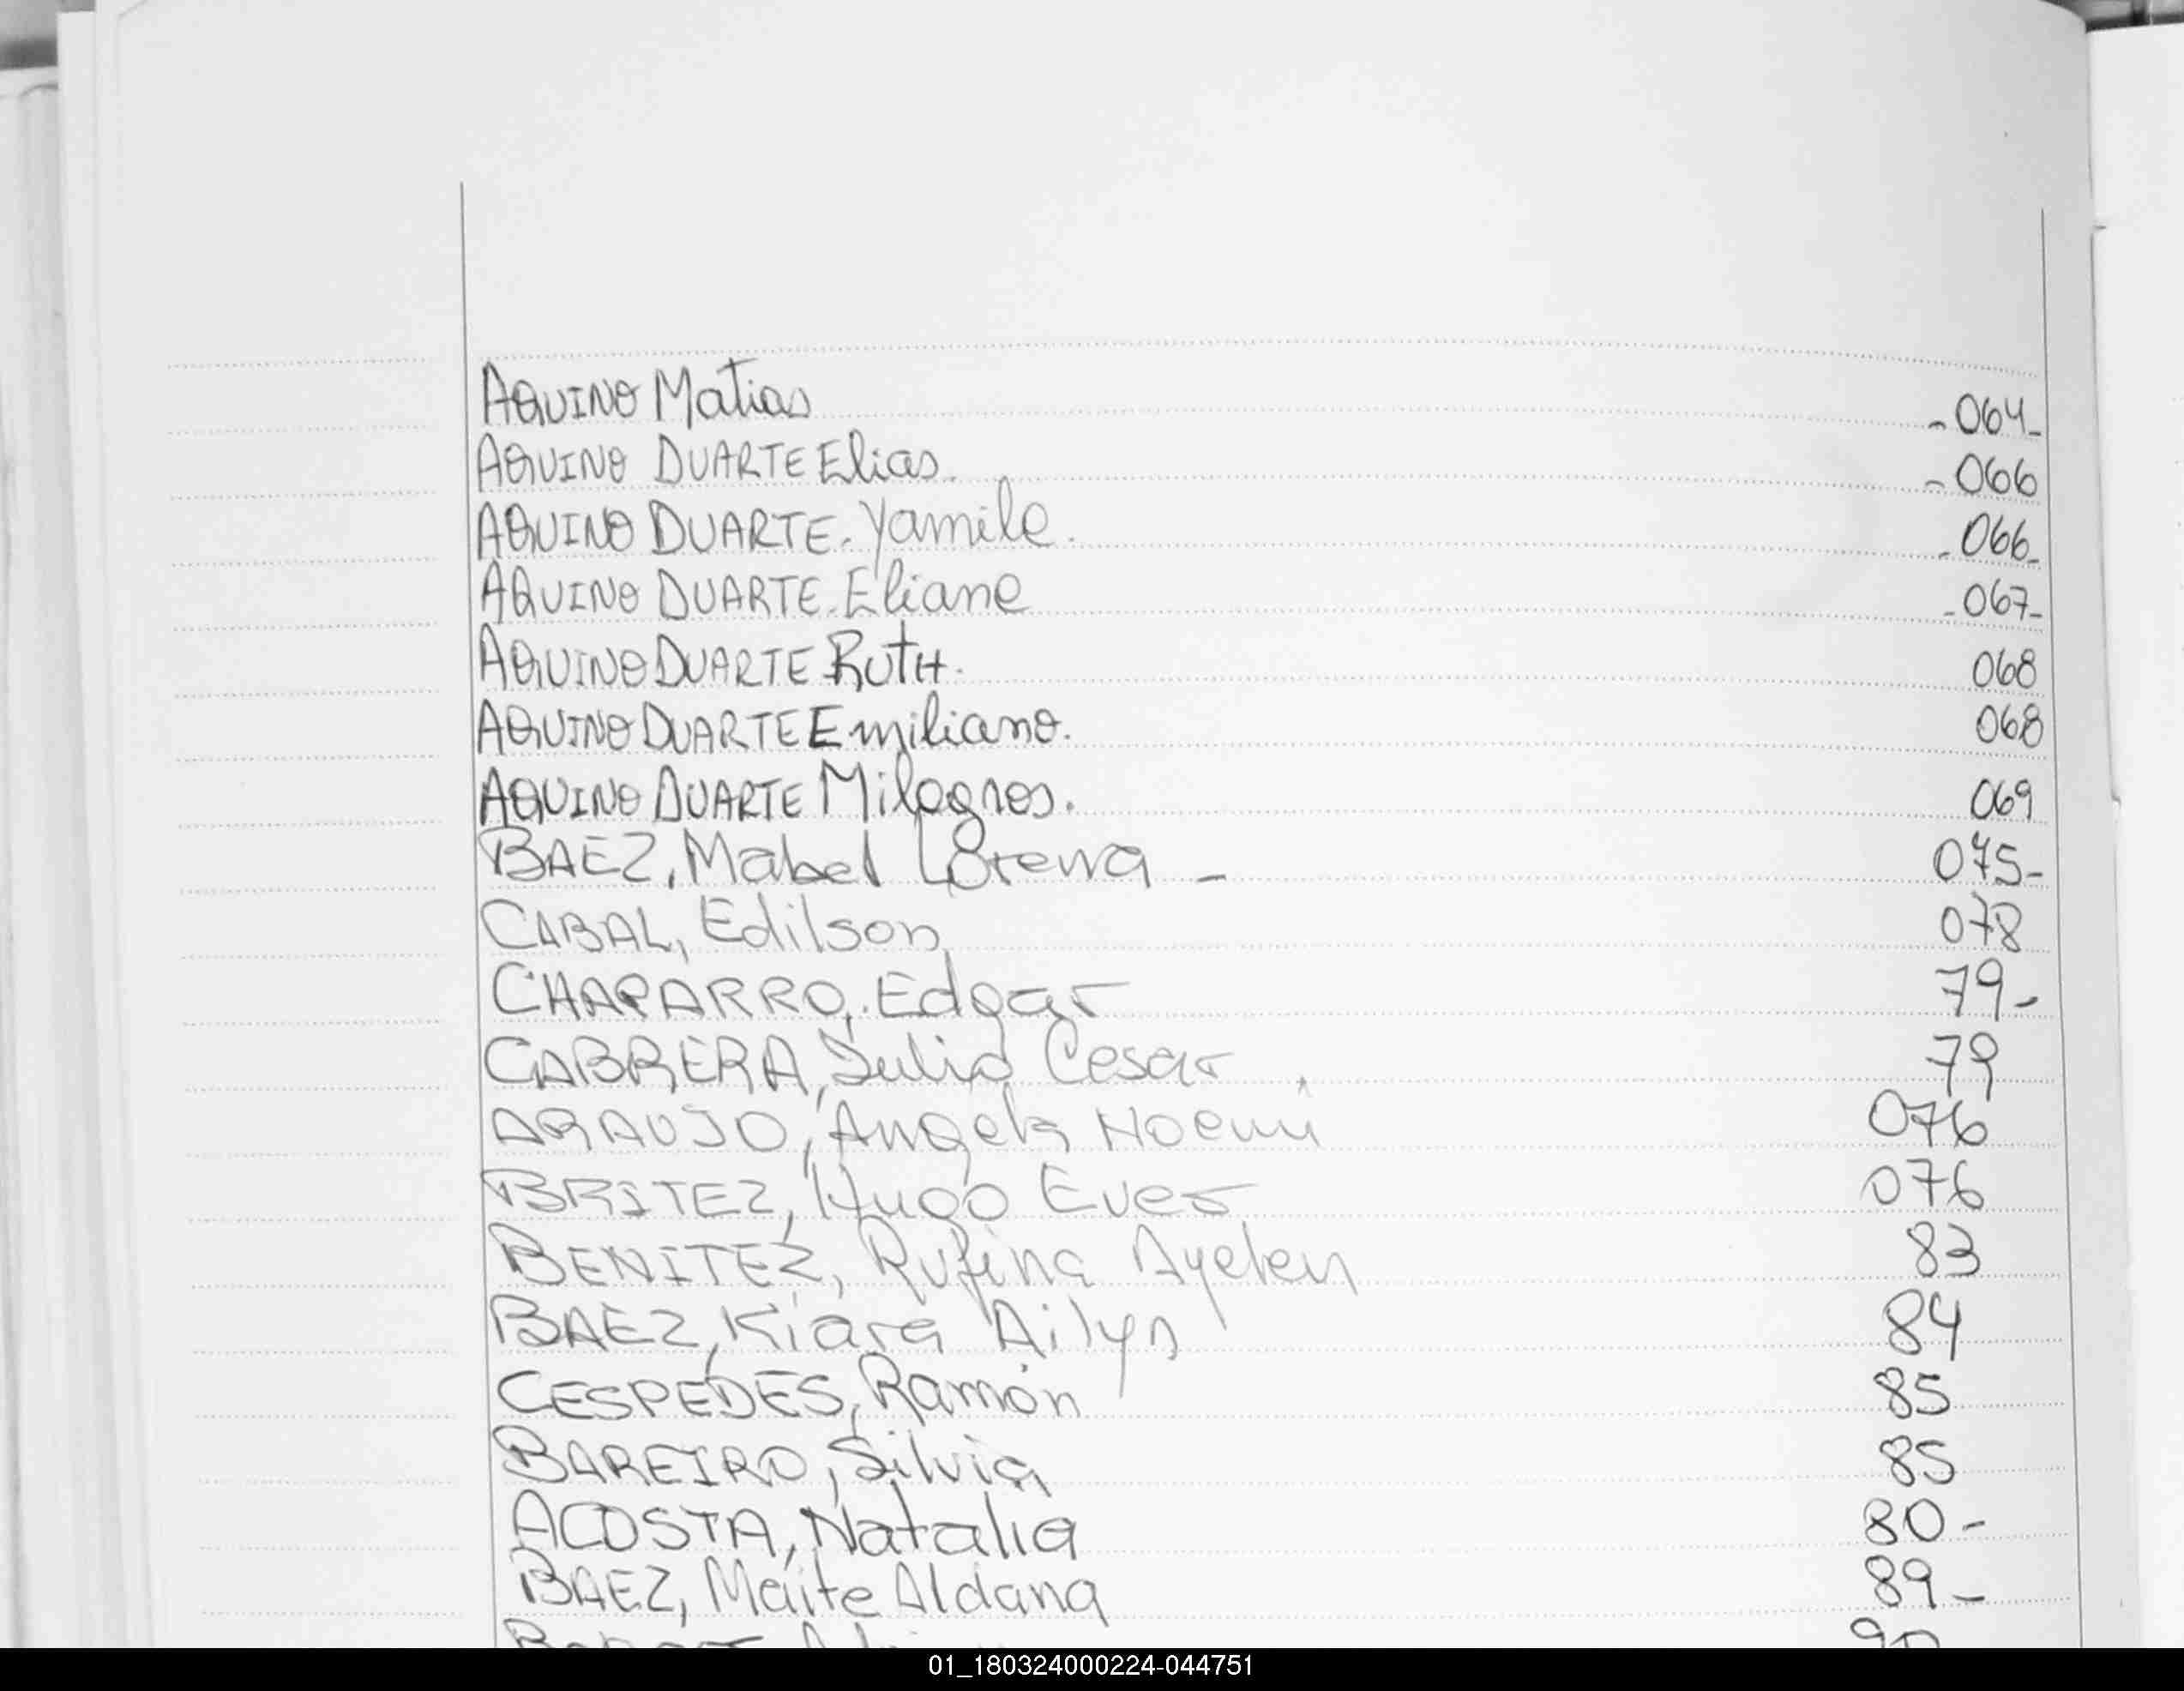 AQUINO Matias -064-
AQUINO DUARTE Elias. -066
AQUINO DUARTE. Yamile. -066-
AQUINO DUARTE. Eliane -067-
AQUINO DUARTE RUTH. 068
AQUINO DUARTE Emiliano. 068
AQUINO DUARTE Milagros. 069
BAEZ, Mabel Lorena - 075-
CABAL, Edilson 078
CHAPARRO, Edgar 79-
CABRERA, Julio Cesar 79
ARAUJO, Angela Noemi 076
BRITEZ, Hugo Ever 076
BENITEZ, Rufina Ayelen 83
BAEZ, Kiara Ailyn 84
CESPEDES, Ramón 85
BAREIRO, Silvia 85
ACOSTA, Natalia 80-
BAEZ, Maite Aldana 89-
90
01_180324000224-044751